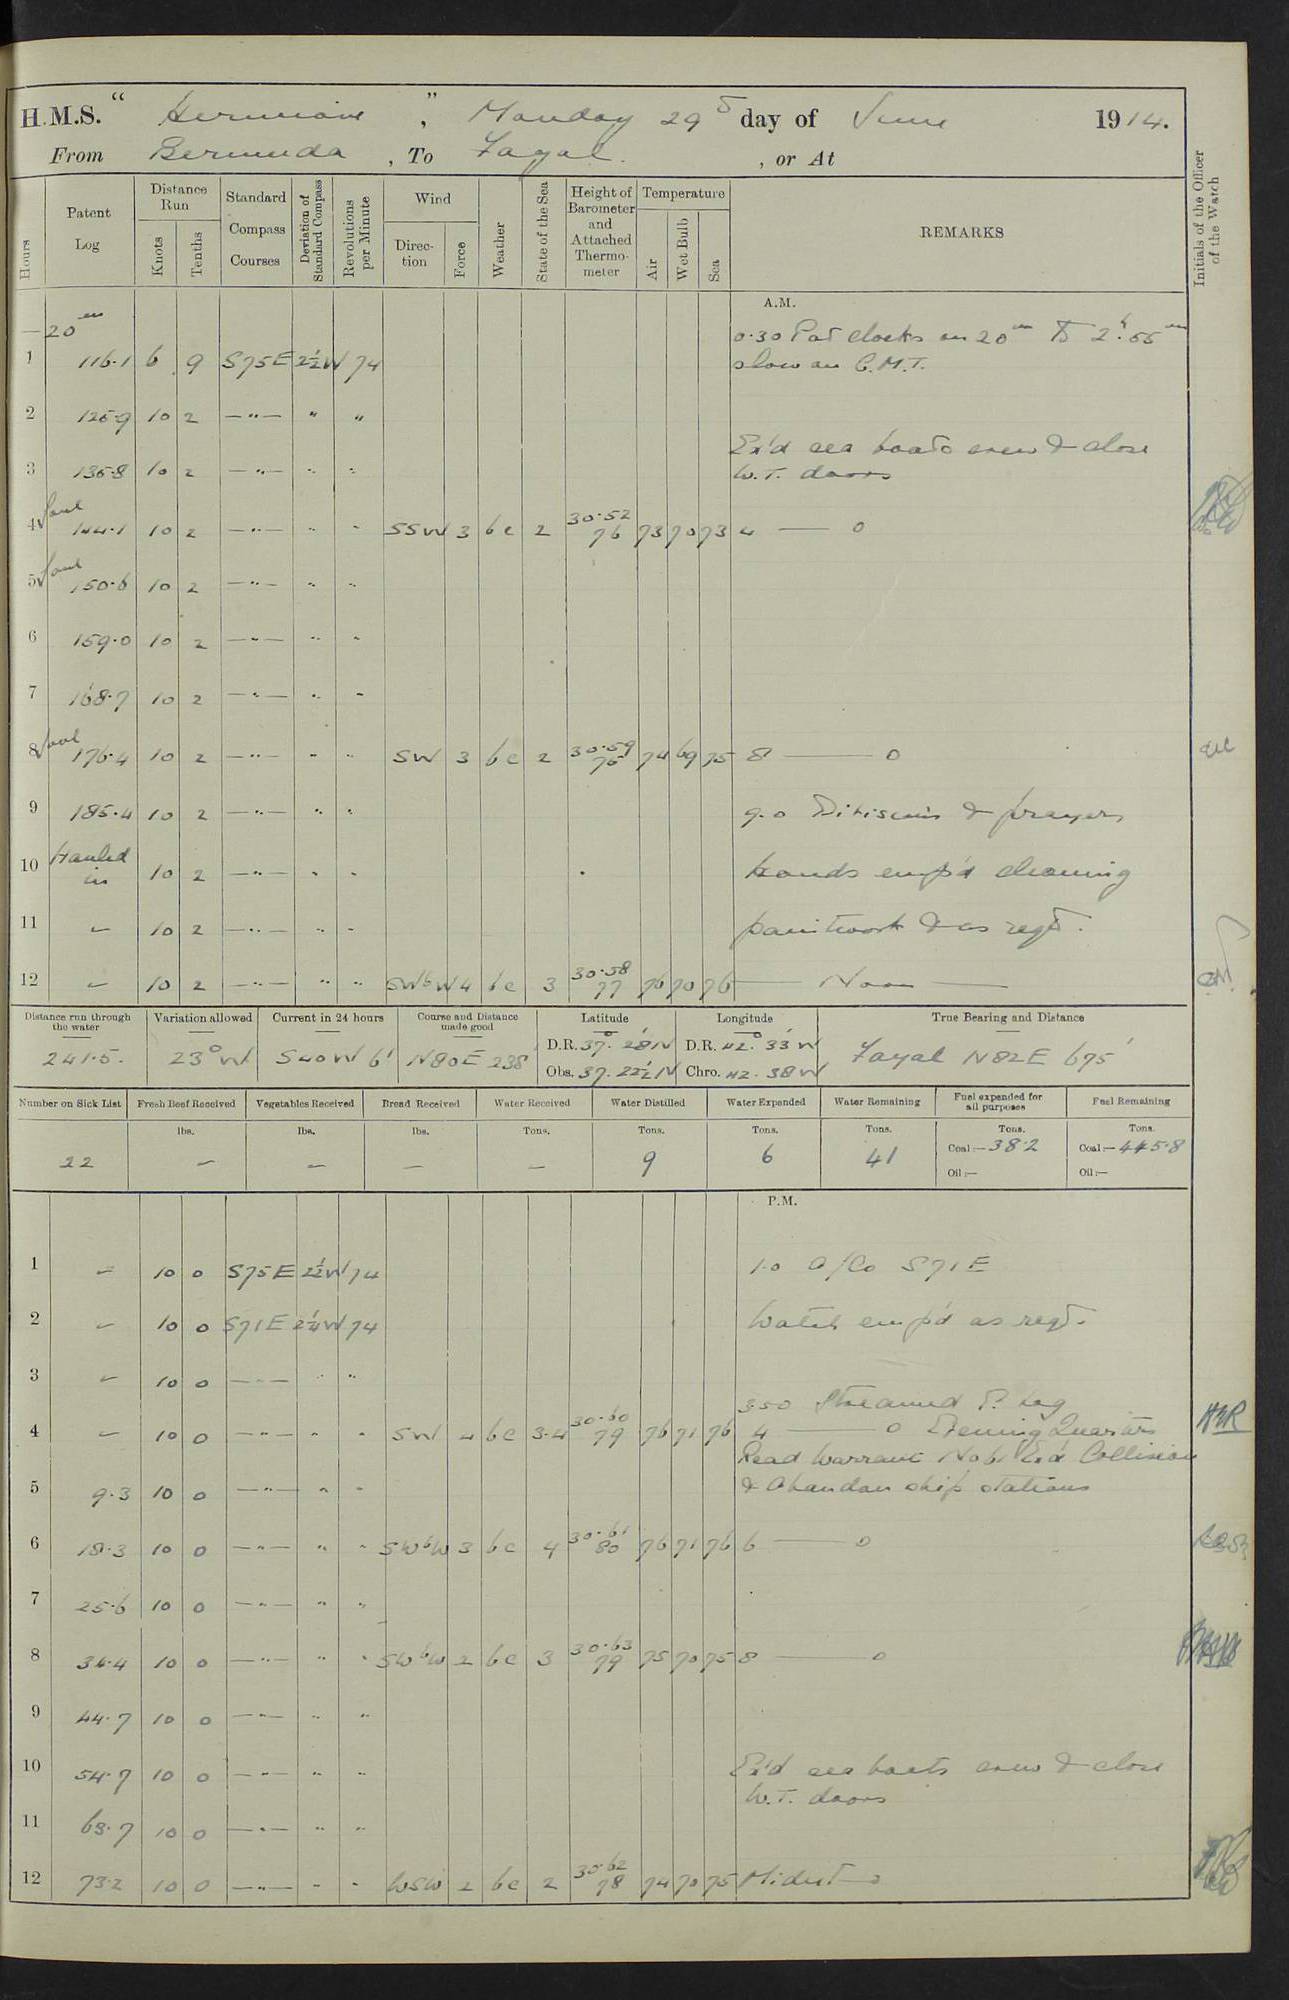 H.M.S. " Hermione ", Monday 29th day of June 1914.
From Bermuda , To Fayal. , or At
Hours
Patent Log
Distance Run
Knots
Tenths
Standard Compass Courses
Deviation of Standard Compass
Revolutions per Minute
Wind
Direction
Force
Weather
State of the Sea
Height of Barometer and Attached Thermometer
Temperature
Air
Wet Bulb
Sea
REMARKS
Initials of the Officer of the Watch
A.M.
— 20 m 0.30 Put clocks on 20m to 2h.55m
1 116.1 6 9 S75E 2½W 74 slow on G.M.T.
2 125.9 10 2 —"— " "
Ex'd sea boats crew & close
3 135.8 10 2 —"— " " W.T. doors
4 Foul 144.1 10 2 —"— " " SSW 3 bc 2 30.52 76 73 70 73 4 —— 0
5 Foul 150.6 10 2 —"— " "
6 159.0 10 2 —"— " "
7 168.7 10 2 —"— " "
8 Foul 176.4 10 2 —"— " " SW 3 bc 2 30.59 75 74 69 75 8 —— 0
9 185.4 10 2 —"— " " 9.0 Divisions & prayers
10 Hauled in 10 2 —"— " " Hands emp'd cleaning
11 ~ 10 2 —"— " " paintwork & as reqd.
12 ~ 10 2 —"— " " SWbW 4 bc 3 30.58 77 76 70 76 —— Noon ——
Distance run through the water
Variation allowed
Current in 24 hours
Course and Distance made good
Latitude
Longitude
True Bearing and Distance
241.5. 23°W S40W 6' N80E 238' D.R. 37° 28'N D.R. 42° 33'W Fayal N82E 675'
Obs. 37. 22½N Chro. 42. 38W
Number on Sick List
Fresh Beef Received
Vegetables Received
Bread Received
Water Received
Water Distilled
Water Expended
Water Remaining
Fuel expended for all purposes
Fuel Remaining
lbs. lbs. lbs. Tons. Tons. Tons. Tons. Tons. Tons.
22 — — — — 9 6 41 Coal:— 38.2 Coal:— 445.8
Oil:— Oil:—
P.M.
1 ~ 10 0 S75E 2½W 74 1.0 A/Co S71E
2 ~ 10 0 S71E 2¼W 74 Watch emp'd as reqd.
3 ~ 10 0 —"— " "
3.50 Streamed P. Log
4 ~ 10 0 —"— " " SW 4 bc 3.4 30.60 79 76 71 76 4 —— 0 Evening Quarters
Read Warrant No 6. Ex'd Collision
5 9.3 10 0 —"— " " & Abandon ship stations
6 18.3 10 0 —"— " " SWbW 3 bc 4 30.61 80 76 71 76 6 —— 0
7 25.6 10 0 —"— " "
8 34.4 10 0 —"— " " SWbW 2 bc 3 30.63 79 75 70 75 8 —— 0
9 44.7 10 0 —"— " "
10 54.7 10 0 —"— " " Ex'd sea boats crew & close
W.T. doors
11 63.7 10 0 —"— " "
12 73.2 10 0 —"— " " WSW 2 bc 2 30.62 78 74 70 75 Midnt — 0